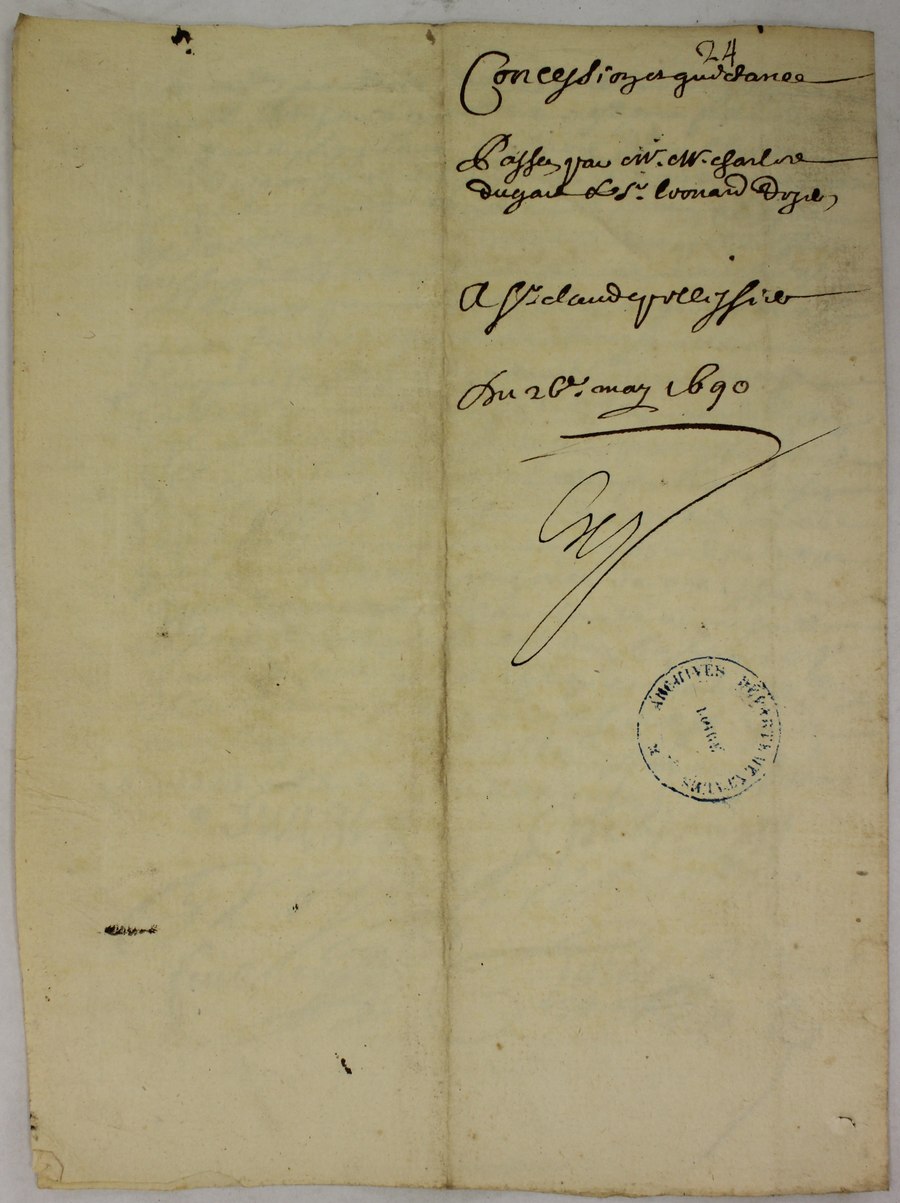 24
Concession et quictance
Passée par Mr. Mr. Charlse
dugare & Sr. Leonard
A Sr. claude pellissier
Du 26e. may 1690
ARCHIVES DÉPARTEMENTALES
LOIRE